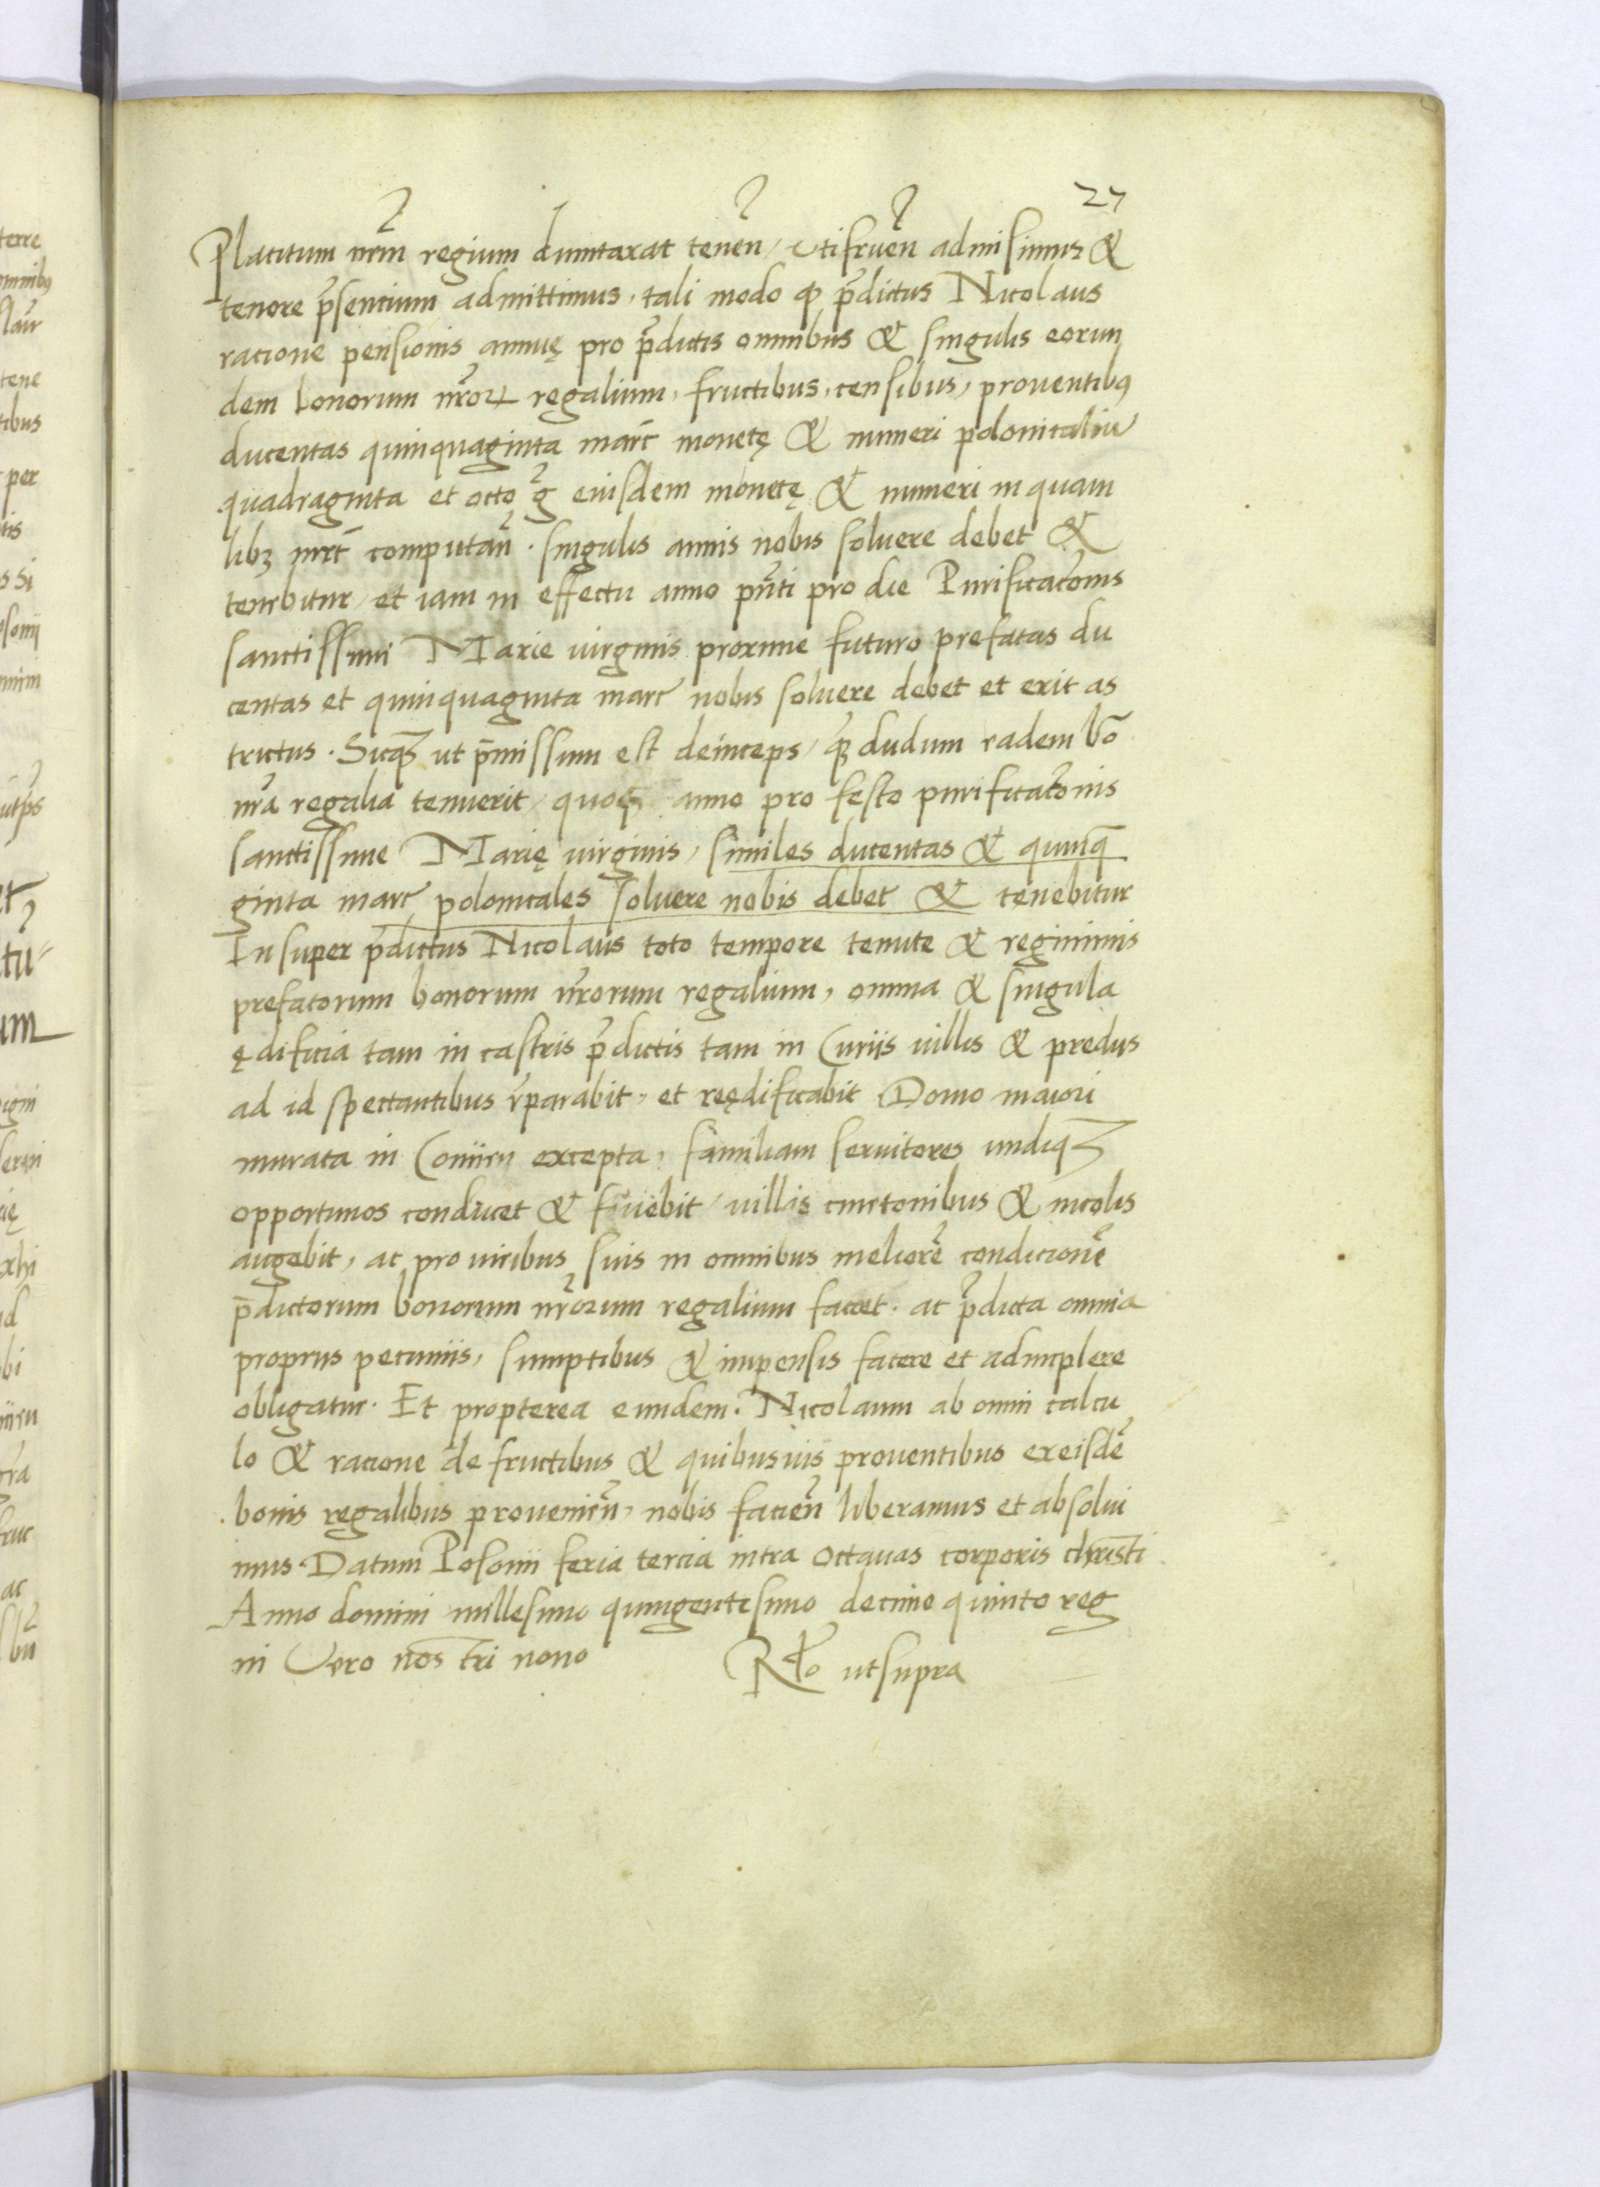 27
Placitum nr̄m regium dumtaxat tenen̄, Utifruen̄ admisimus &
tenore p̄sentium admittimus, tali modo ꝙ p̄dictus Nicolaus
racione pensionis annuę pro p̄dictis omnibus & singulis eorun
dem bonorum nr̄oꝝ regalium, fructibus, censibus, proventibꝰ
ducentas quinquaginta marc̄ monetę & numeri polonicaliū
quadraginta et octo g̊ eiusdem monetę & numeri in quam
libꝫ mrc̄ computan̄. singulis annis nobis soluere debet &
tenebitur, et iam in effectu anno pn̄ti pro die Purificac̄onis
sanctissimi Marie virginis proxime futuro prefatas du
centas et quinquaginta marc̄ nobis soluere debet et erit as
trictus. Sicqꝫ ut p̄missum est deinceps, qꝫ dudum eadem bō
nr̄a regalia tenuerit, quoqꝫ anno pro festo purificac̄onis
sanctissime Marię virginis, similes ducentas & quinq̄
ginta marc̄ polonicales soluere nobis debet & tenebitur
Insuper p̄dictus Nicolaus toto tempore tenute & regiminis
prefatorum bonorum nr̄orum regalium, omnia & singula
ędificia tam in castris p̄dictis tam in Curiis villis & prediis
ad id spectantibus r̄parabit, et reędificabit Domo maiori
murata in Coniicu excepta, familiam servitores undiqꝫ
opportunos conducet & fovebit, villas cmetonibus & incolis
augebit, ac pro viribus suis in omnibus meliorē condicionē
p̄dictorum bonorum nr̄orum regalium faciet. ac p̄dicta omnia
propriis pecuniis, sumptibus & impensis facere et adimplere
obligatur. Et propterea eundem. Nicolaum ab omni calcu
lo & racione de fructibus & quibusvis proventibus ex eisdē
bonis regalibus provenien̄, nobis facien̄ liberamus et absolvi
mus. Datum Posonii feria tercia intra octavas corporis chr̄isti
Anno domini millesimo quingentesimo decimo quinto reg
ni Vero nostri nono
Rl̄o utsupra